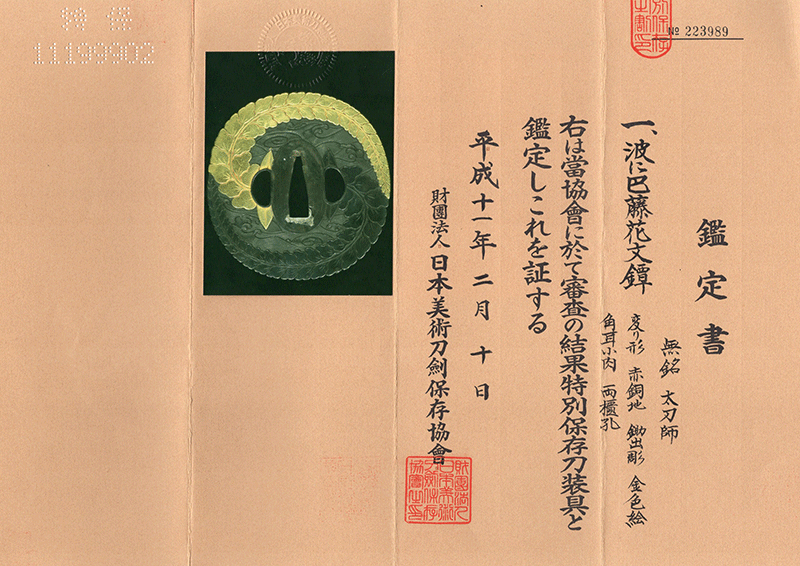 鑑定書
一、波に巴藤花文鐔
無銘 太刀師
変り形 赤銅地 鋤出彫 金色絵
角耳小肉 両櫃孔
右は當協會に於て審査の結果特別保存刀装具と
鑑定しこれを証する
平成十一年二月十日
財團法人 日本美術刀劍保存協會
№ 223989
11199902